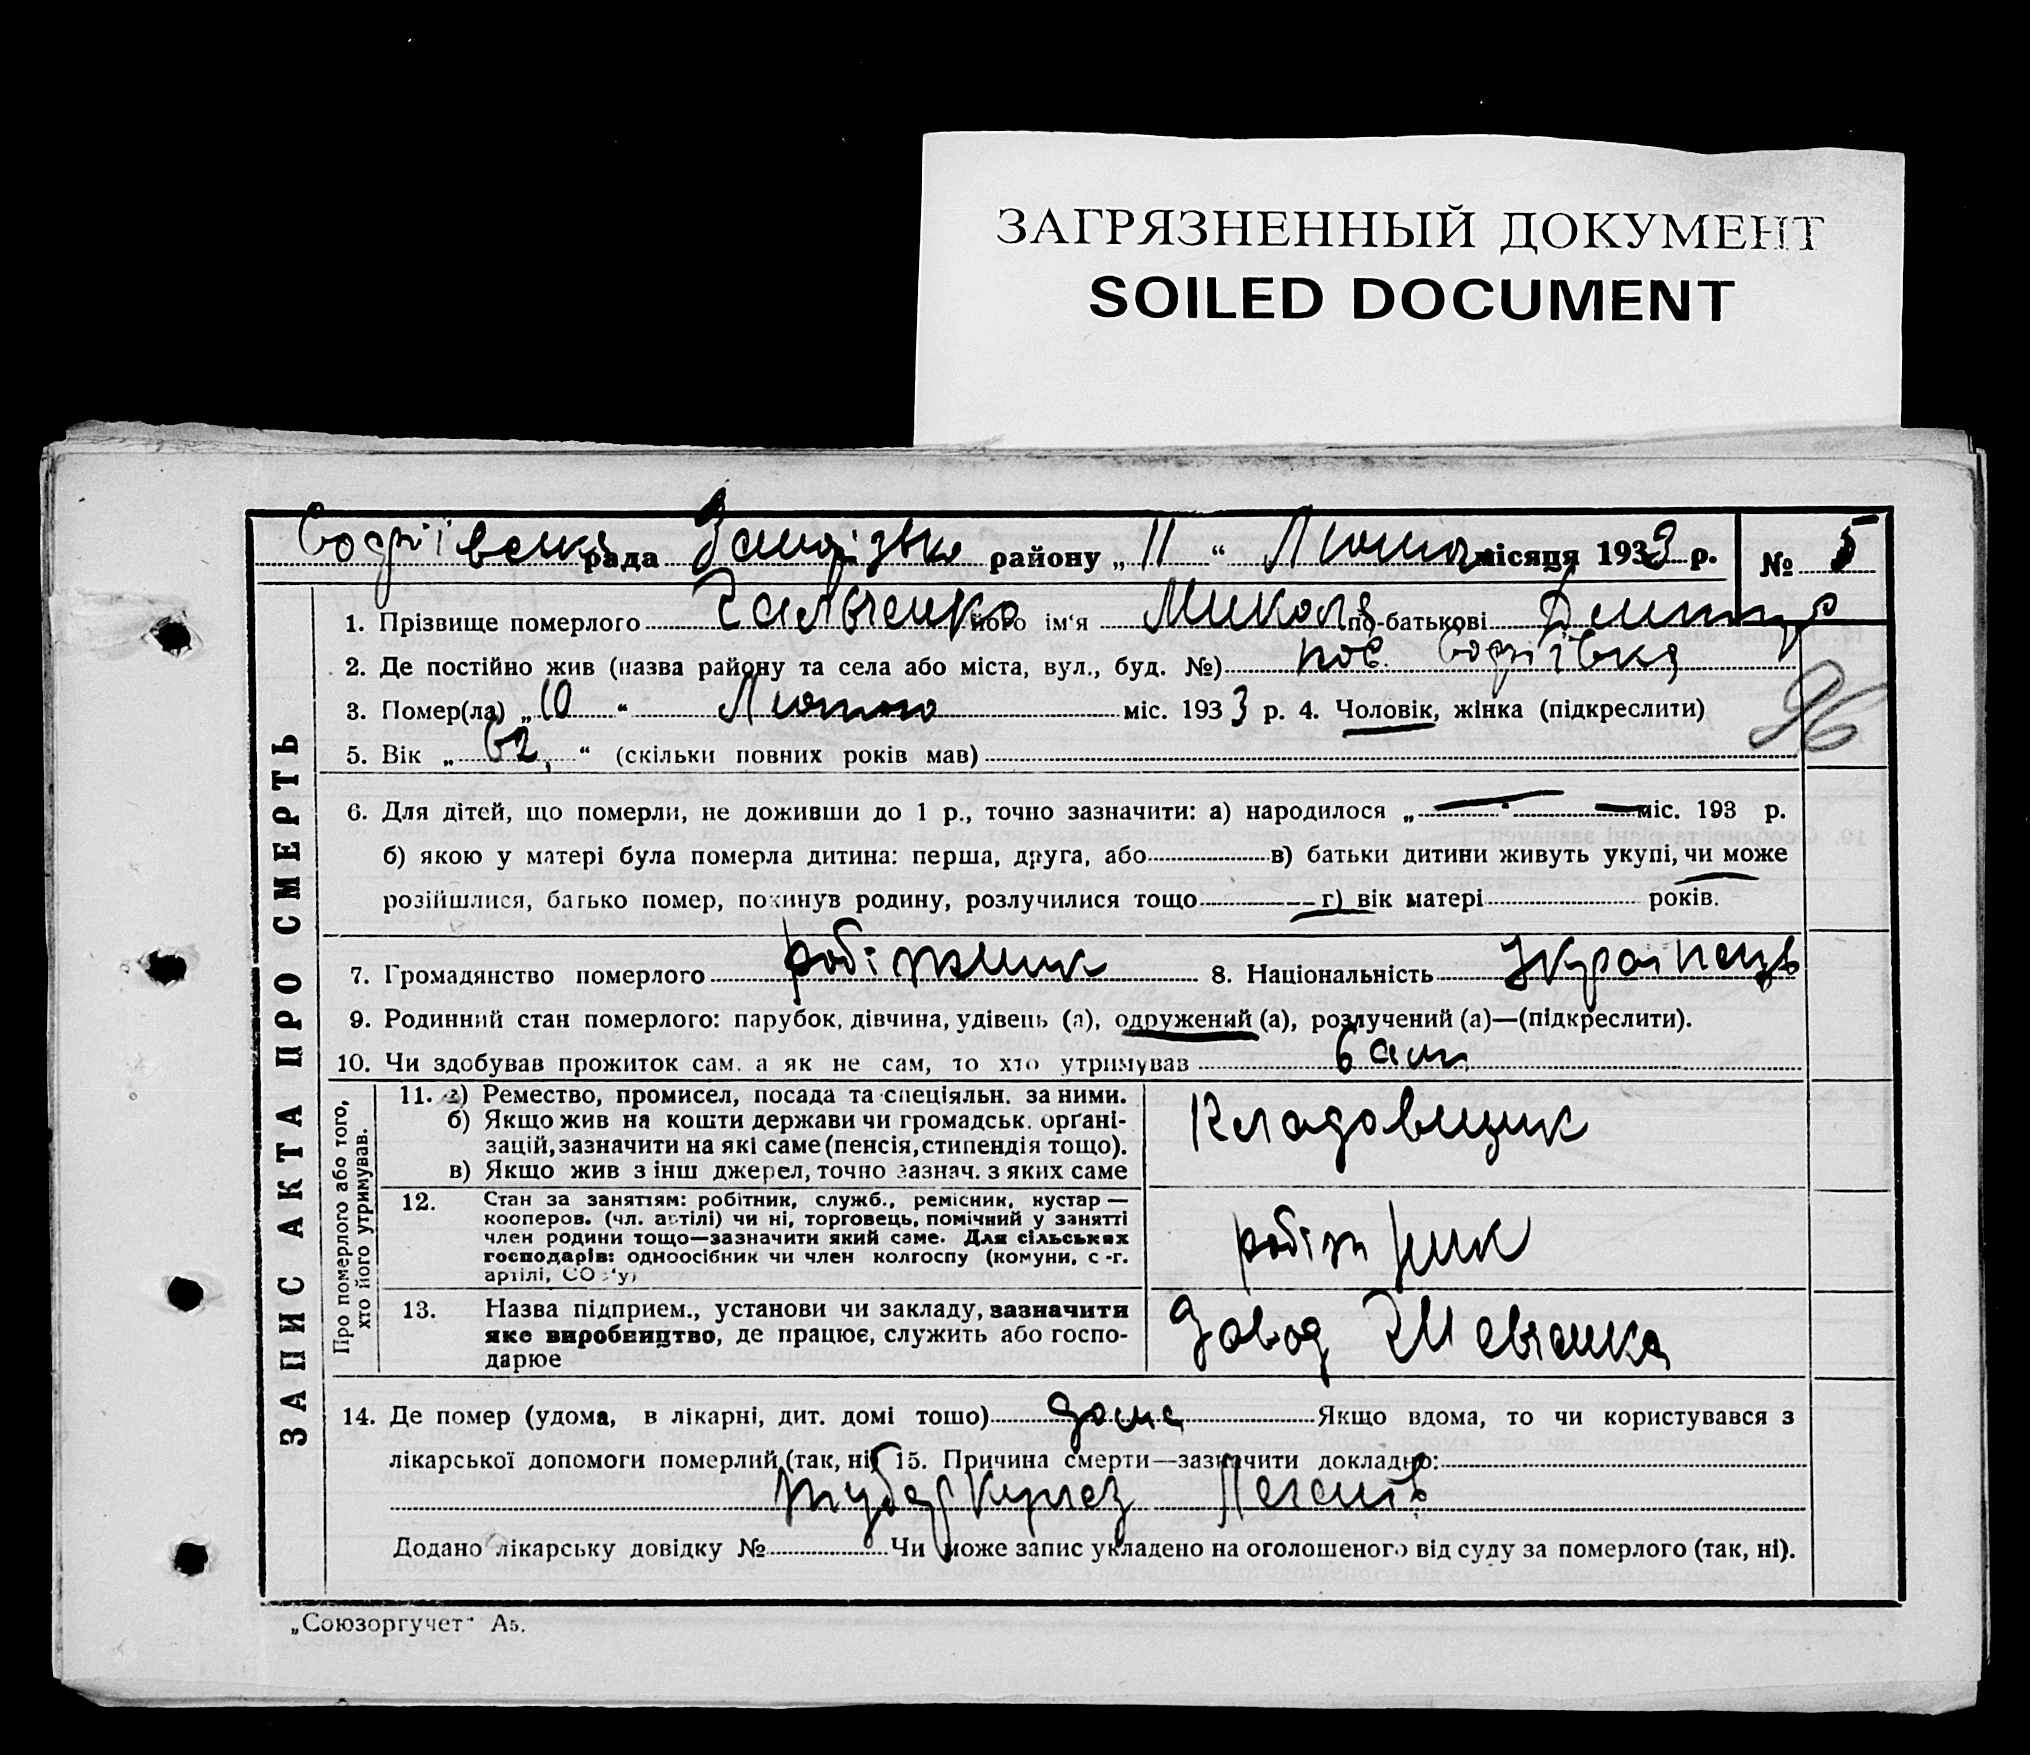 ЗАГРЯЗНЕННЫЙ ДОКУМЕНТ
SOILED DOCUMENT
Софіївська рада Запорізьке району „ 11 “ Лютого місяця 1933 р. № 5
ЗАПИС АКТА ПРО СМЕРТЬ
1. Прізвище померлого Гальченко його ім‘я Микола по-батькові Дмитр
2. Де постійно жив (назва району та села або міста, вул., буд. №) пос. Софіївка
3. Помер(ла) „ 10 “ Лютого міс. 1933 р. 4. Чоловік, жінка (підкреслити)
96
5. Вік „ 62 “ (скільки повних років мав)
6. Для дітей, що померли, не доживши до 1 р., точно зазначити: а) народилося „ “ міс. 193 р.
б) якою у матері була померла дитина: перша, друга, або в) батьки дитини живуть укупі, чи може
розійшлися, батько помер, покинув родину, розлучилися тощо г) вік матері років.
7. Громадянство померлого робітник 8. Національність Українець
9. Родинний стан померлого: парубок, дівчина, удівець (а), одружений (а), розлучений (а)—(підкреслити).
10. Чи здобував прожиток сам, а як не сам, то хто утримував сам
Про померлого або того,
хто його утримував.
11. а) Ремество, промисел, посада та спеціяльн. за ними.
б) Якщо жив на кошти держави чи громадськ. орґані-
зацій, зазначити на які саме (пенсія, стипендія тощо).
в) Якщо жив з інш джерел, точно зазнач. з яких саме
Кладовщик
12. Стан за заняттям: робітник, служб., ремісник, кустар —
кооперов. (чл. артілі) чи ні, торговець, помічний у занятті
член родини тощо—зазначити який саме. Для сільських
господарів: одноосібник чи член колгоспу (комуни, с-г.
артілі, СОЗ‘у)
робітник
13. Назва підприєм., установи чи закладу, зазначити
яке виробництво, де працює, служить або госпо-
дарює
Завод Шевченка
14. Де помер (удома, в лікарні, дит. домі тощо) дома Якщо вдома, то чи користувався з
лікарської допомоги померлий (так, ні) 15. Причина смерти—зазначити докладно:
туберкульоз Легенів
Додано лікарську довідку № Чи може запис укладено на оголошеного від суду за померлого (так, ні).
„Союзоргучет“ А5.